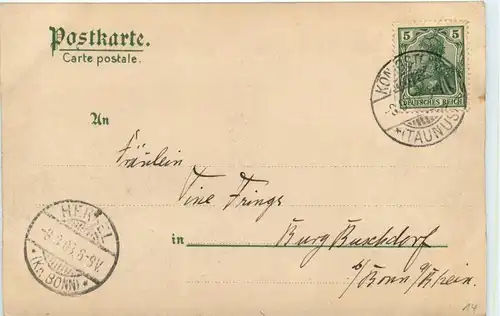 Postkarte.
Carte postale.
5 5
DEUTSCHES REICH
(TAUNUS)
An
Fräulein
Tine Frings
in Burg Buschdorf
b/Bonn a/Rhein.
HERSEL
(Kr. BONN)
14